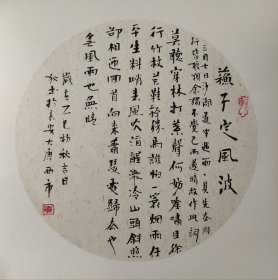 蘇子定風波
三月七日沙湖道中遇雨〻具先去同
行皆狼狽余獨不覺已而遂晴故作此詞
莫聽穿林打葉聲何妨吟嘯且徐
行竹杖芒鞋輕勝馬誰怕一蓑烟雨任
平生料峭春風吹酒醒微冷山頭斜照
却相迎回首向來蕭瑟處歸去也
無風雨也無晴
歲在乙巳初秋吉日
於長安大唐西市